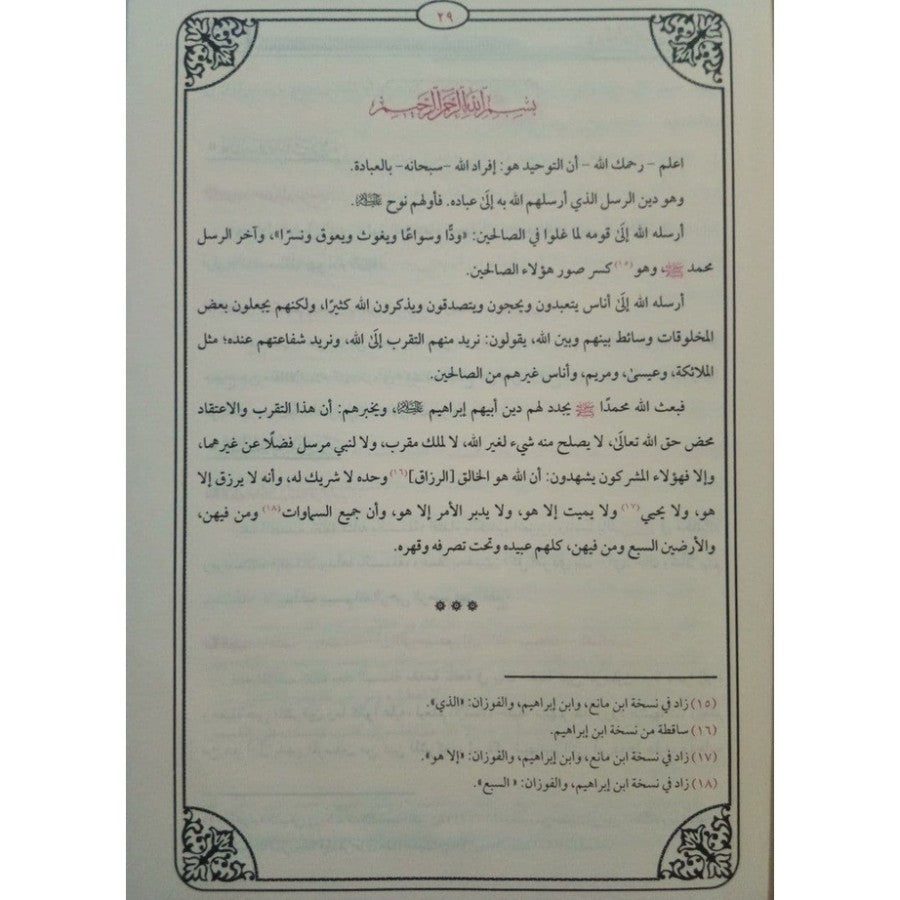 ٢٩
بسم الله الرحمن الرحيم
اعلم – رحمك الله – أن التوحيد هو: إفراد الله –سبحانه– بالعبادة.
وهو دين الرسل الذي أرسلهم الله به إلَىٰ عباده. فأولهم نوح ﷺ.
أرسله الله إلَىٰ قومه لما غلوا في الصالحين: «ودًّا وسواعًا ويغوث ويعوق ونسرًا»، وآخر الرسل
محمد ﷺ، وهو(١٥) كسر صور هؤلاء الصالحين.
أرسله الله إلَىٰ أناس يتعبدون ويحجون ويتصدقون ويذكرون الله كثيرًا، ولكنهم يجعلون بعض
المخلوقات وسائط بينهم وبين الله، يقولون: نريد منهم التقرب إلَىٰ الله، ونريد شفاعتهم عنده؛ مثل
الملائكة، وعيسىٰ، ومريم، وأناس غيرهم من الصالحين.
فبعث الله محمدًا ﷺ يجدد لهم دين أبيهم إبراهيم ﷺ، ويخبرهم: أن هذا التقرب والاعتقاد
محض حق الله تعالَىٰ، لا يصلح منه شيء لغير الله، لا لملك مقرب، ولا لنبي مرسل فضلًا عن غيرهما،
وإلا فهؤلاء المشركون يشهدون: أن الله هو الخالق [الرزاق](١٦) وحده لا شريك له، وأنه لا يرزق إلا
هو، ولا يحيي(١٧) ولا يميت إلا هو، ولا يدبر الأمر إلا هو، وأن جميع السماوات(١٨) ومن فيهن،
والأرضين السبع ومن فيهن، كلهم عبيده وتحت تصرفه وقهره.
(١٥) زاد في نسخة ابن مانع، وابن إبراهيم، والفوزان: «الذي».
(١٦) ساقطة من نسخة ابن إبراهيم.
(١٧) زاد في نسخة ابن مانع، وابن إبراهيم، والفوزان: «إلا هو».
(١٨) زاد في نسخة ابن إبراهيم، والفوزان: «السبع».